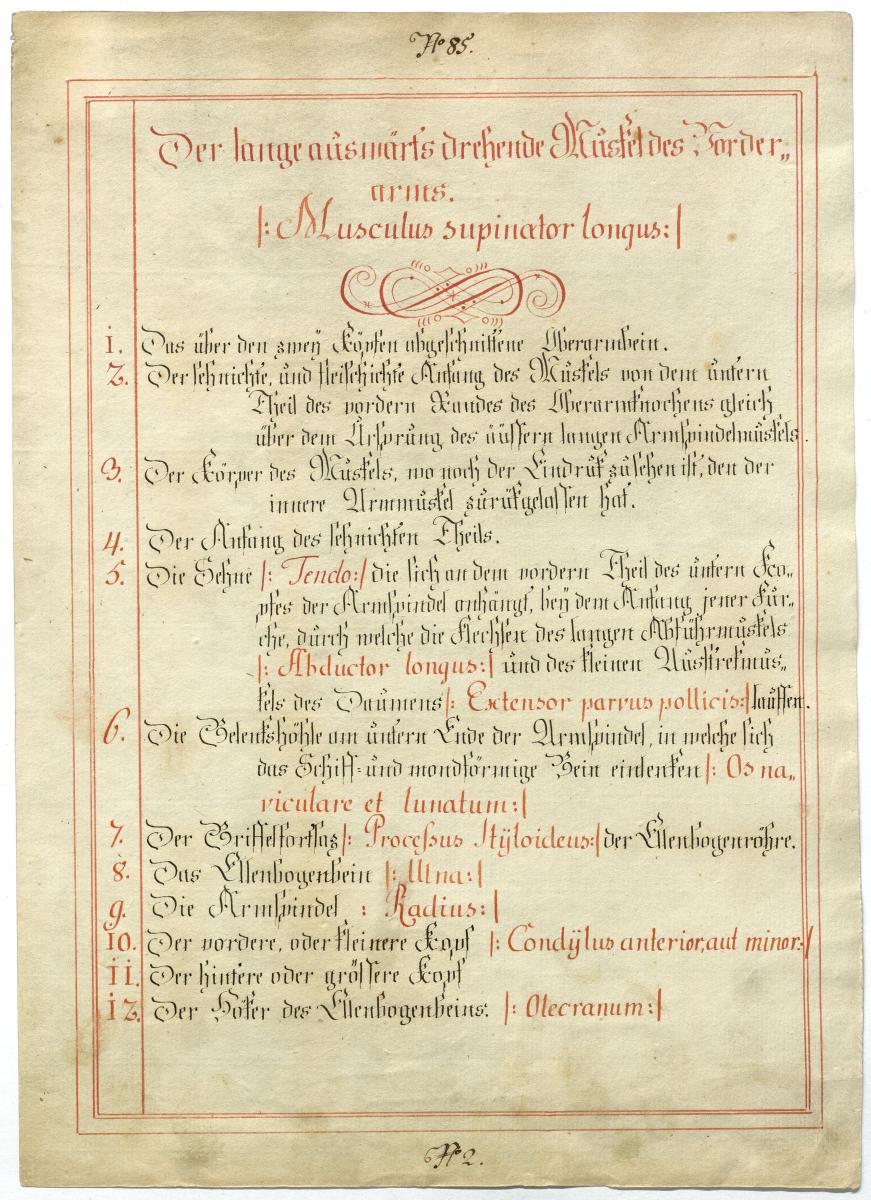 No 85.
Der lange auswärts drehende Muskel des Vorder„
arms.
|: Musculus supinator longus: |
1. Das über den zweÿ Köpfen abgeschnittene Oberarmbein.
2. Der sehnichte, und fleischichte Anfang des Muskels von dem untern
Theil des vordern Randes des Oberarmknochens gleich
über dem Ursprung des äüssern langen Armspindelmuskels.
3. Der Körper des Muskels, wo noch der Eindruk zu sehen ist, den der
innere Armmuskel zurükgelassen hat.
4. Der Anfang des sehnichten Theils.
5. Die Sehne |: Tendo: | die sich an dem vordern Theil des untern Ko„
pfes der Armspindel anhängt, beÿ dem Anfang jener Fur„
che, durch welche die Flechsen des langen Abführmuskels
|: Abductor longus: | und des kleinen Ausstrekmus„
kels des Daumens |: Extensor parvus pollicis: | lauffen.
6. Die Gelenkshöhle am untern Ende der Armspindel, in welche sich
das Schiff- und mondförmige Bein einlenken |: Os na„
viculare et lunatum: |
7. Der Griffelfortsaz |: Proceßus Stÿloideus: | der Ellenbogenröhre.
8. Das Ellenbogenbein |: Ulna: |
9. Die Armspindel : Radius: |
10. Der vordere, oder kleinere Kopf |: Condÿlus anterior, aut minor: |
11. Der hintere oder grössere Kopf
12. Der Höker des Ellenbogenbeins. |: Olecranum: |
No 2.